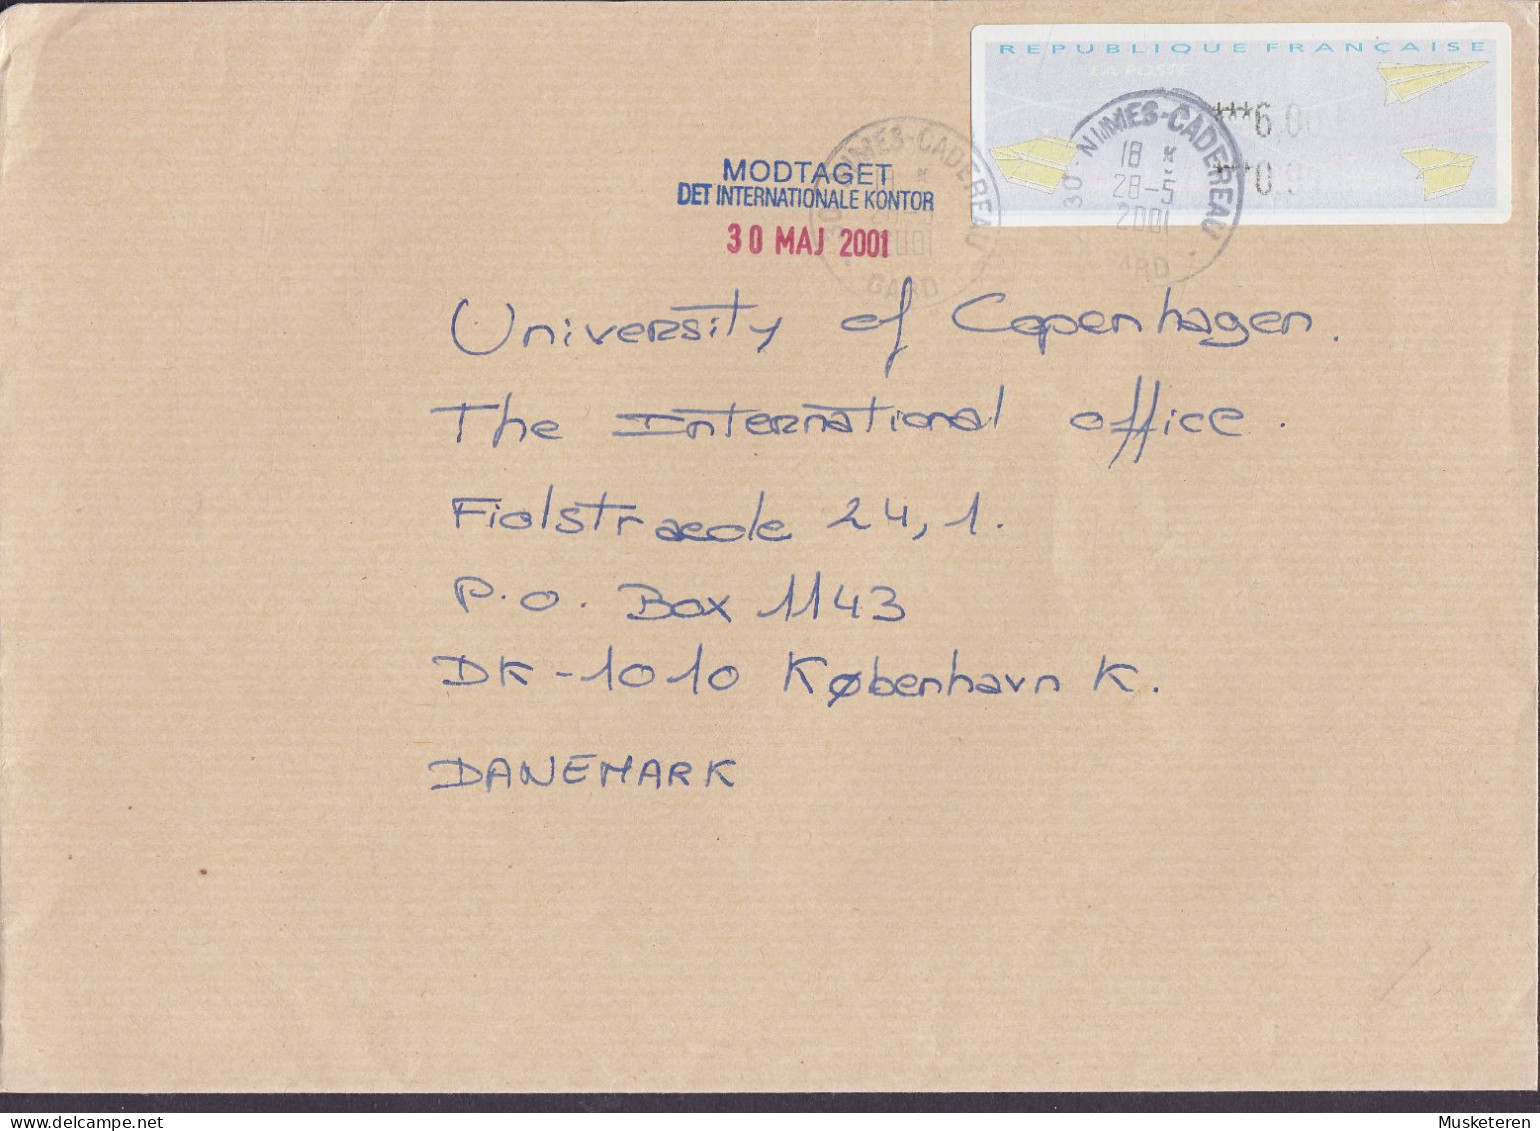 REPUBLIQUE FRANÇAISE
LA POSTE
***6,00
30 - NIMES-CADEREAU
18 *
28-5
2001
MODTAGET
DET INTERNATIONALE KONTOR
30 MAJ 2001
GARD
University of Copenhagen.
The International office.
Fiolstraede 24, 1.
P.O. Box 1143
DK-1010 København K.
DANEMARK
Musketeren